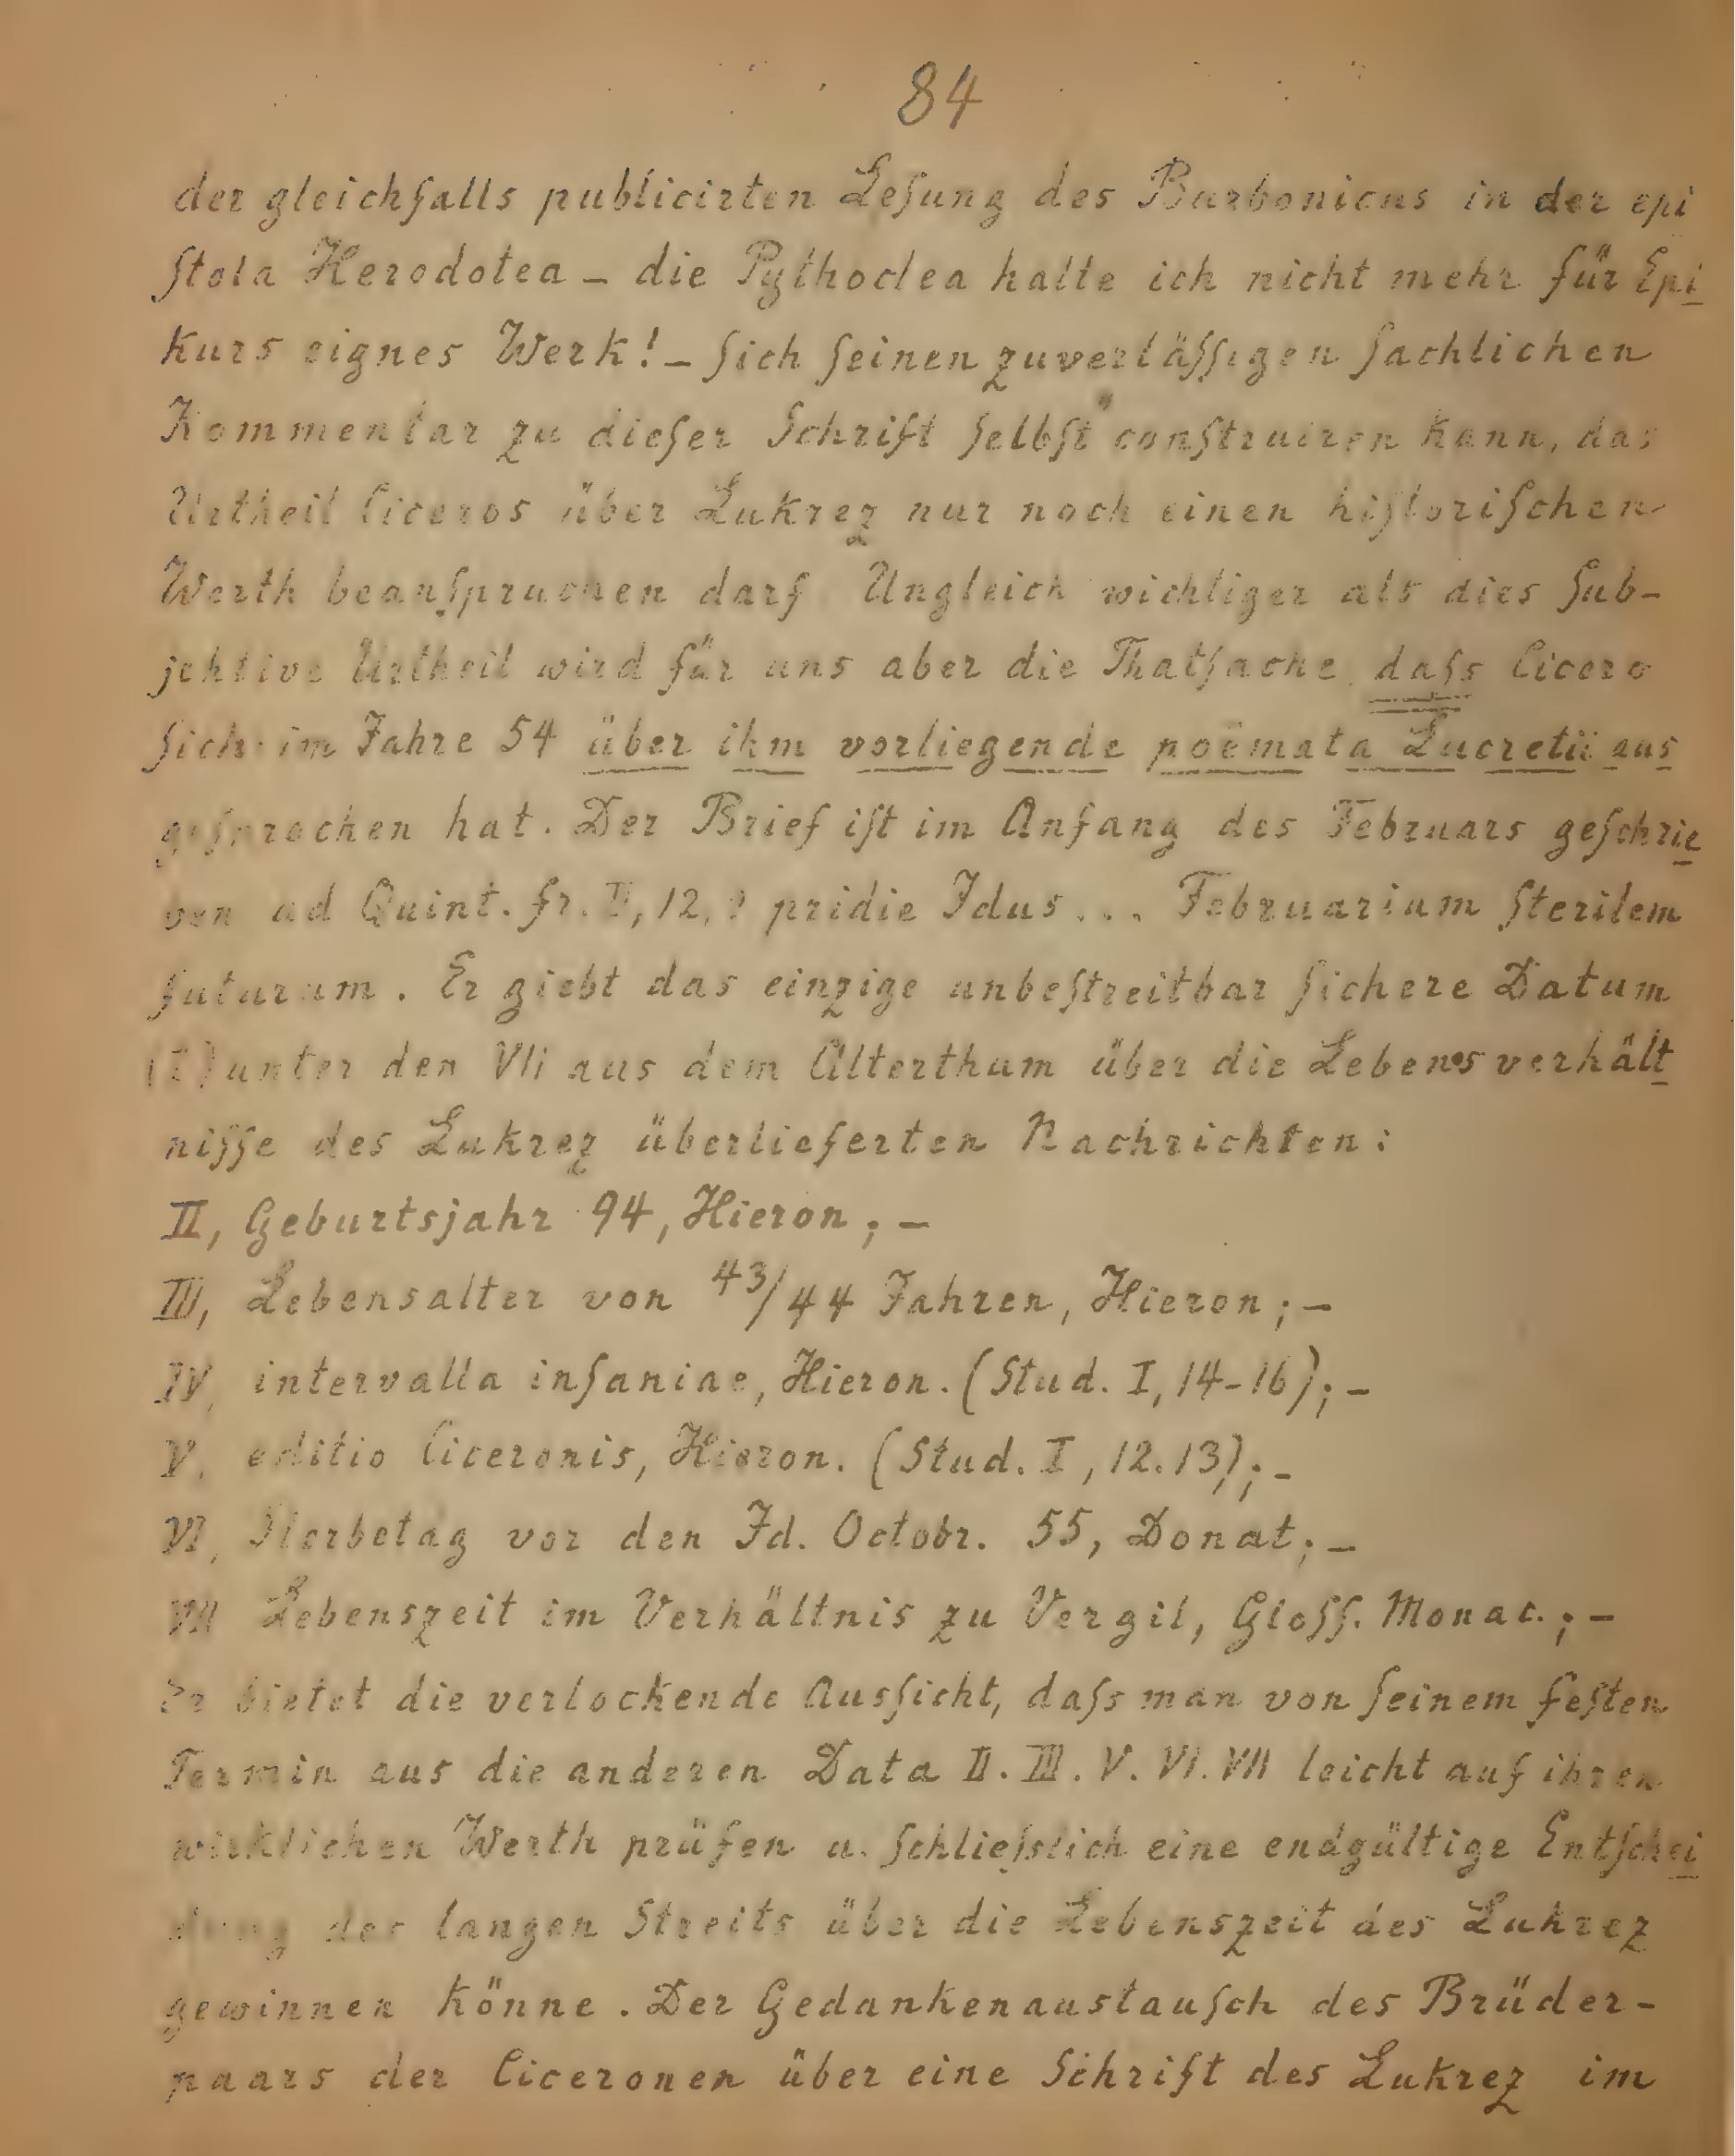 84
der gleichfalls publicirten Leſung des Burbonicus in der epi
ſtola Herodotea – die Pythoclea halte ich nicht mehr für Epi
kurs eignes Werk! – ſich ſeinen zuverläſſigen ſachlichen
Kommentar zu dieſer Schrift ſelbſt conſtruiren kann, das
Urtheil Ciceros über Lukrez nur noch einen hiſtoriſchen
Werth beanſpruchen darf Ungleich wichtiger als dies ſub-
jektive Urtheil wird für uns aber die Thatſache daſs Cicero
ſich im Jahre 54 über ihm vorliegende poëmata Lucretii aus
geſprochen hat. Der Brief iſt im Anfang des Februars geſchrie
ben ad Quint. fr. II, 12, pridie Idus . . . Februarium ſterilem
futurum. Er giebt das einzige unbeſtreitbar ſichere Datum
(I) unter den VII aus dem Alterthum über die Lebensverhält
niſſe des Lukrez überlieferten Nachrichten:
II, Geburtsjahr 94, Hieron; –
III, Lebensalter von 43/44 Jahren, Hieron; –
IV, intervalla inſaniae, Hieron. (Stud. I, 14-16); –
V. editio Ciceronis, Hieron. (Stud. I, 12.13); –
VI, Sterbetag vor den Id. Octobr. 55, Donat; –
VII Lebenszeit im Verhältnis zu Vergil, Gloſſ. Monac.; –
Er bietet die verlockende Ausſicht, daſs man von ſeinem feſten
Termin aus die anderen Data II. III. V. VI. VII leicht auf ihren
wirklichen Werth prüfen u. ſchlieſslich eine endgültige Entſchei
dung des langen Streits über die Lebenszeit des Lukrez
gewinnen könne. Der Gedankenaustauſch des Brüder-
paars der Ciceronen über eine Schrift des Lukrez im